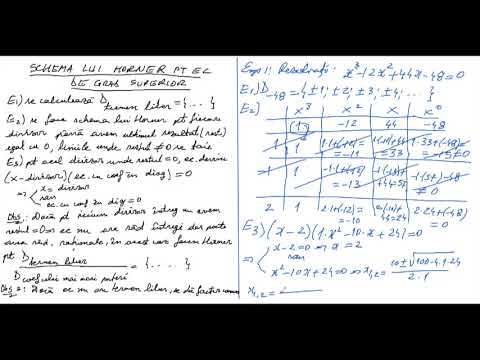 SCHEMA LUI HORNER PT EC
DE GRAD SUPERIOR
E1) se calculează D termen liber = {...}
E2) se face schema lui Horner pt fiecare
divizor până avem ultimul rezultat (rest)
egal cu 0, liniile unde restul ≠0 se taie
E3) pt acel divizor unde restul=0, ec. devine
(x-divizor)( ec. cu coef din diag)=0
⇒ x = divizor
sau
ec. cu coef din diag = 0
Obs1: Dacă pt niciun divizor întreg nu avem
restul =0 ⇒ ec nu are răd întregi dar poate
avea răd. raționale, în acest caz facem Horner
pt D termen liber = {...}
D coeficului mai mari puteri
Obs 2: Dacă ec nu are termen liber, se dă factor comun
Exp 1: Rezolvați: x³-12x²+44x-48=0
E1) D-48 = {±1; ±2; ±3; ±4; ...}
E2)
x³ x² x x⁰
1 -12 44 -48
1 1 1·1+(-12)= =-11 1·(-11)+44= =33 1·33+(-48)= =-15≠0
-1 1 -1·1+(-12)= =-13 -1·(-13)+ 44=57 -1·57+(-48) ≠0
2 1 2·1+(-12)= =-10 2·(-10)+ 44=24 2·24+(-48) 0
E3) (x-2)(1·x²-10·x+24)=0
⇒ x-2=0 ⇒ x=2
sau
x²-10x+24=0 ⇒ x1,2 = 10±√100-4·1·24
2·1
x1,2 =